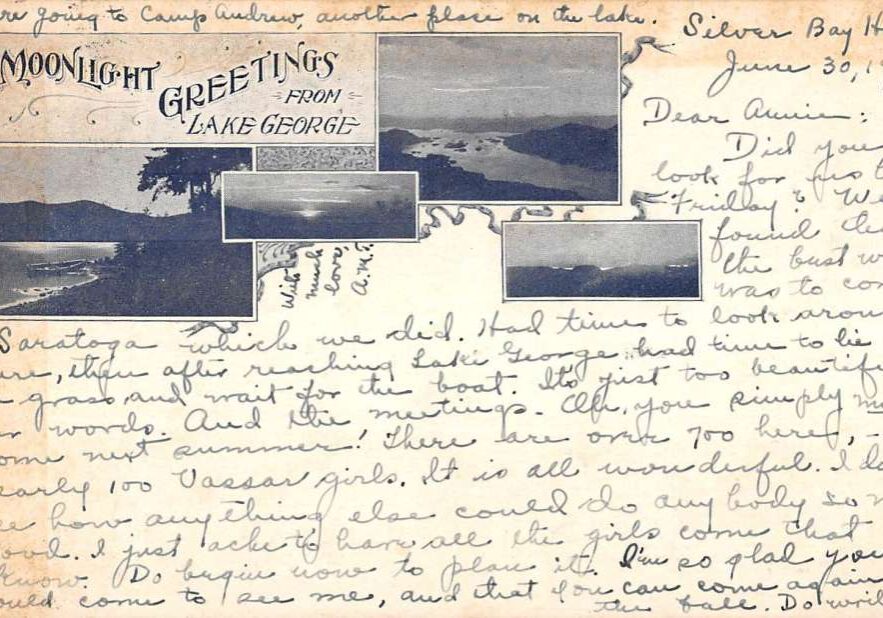 re going to Camp Andrew, another place on the lake.
MOONLIGHT
GREETINGS
FROM
LAKE GEORGE
Silver Bay H
June 30, 1
Dear Annie:
Did you
look for us
Friday? We
found
the best w
was to co
With
much
love,
A.M.T.
Saratoga which we did. Had time to look aroun
ere, then after reaching Lake George had time to lie
grass, and wait for the boat. It's just too beautifu
words. And the meetings. Oh, you simply mu
ome next summer! There are over 700 here, -
early 100 Vassar girls. It is all wonderful. I do
ee how anything else could do anybody so m
ood. I just ache to have all the girls come that
know. Do begin now to plan it. I'm so glad you
ould come to see me, and that you can come again
the fall. Do writ